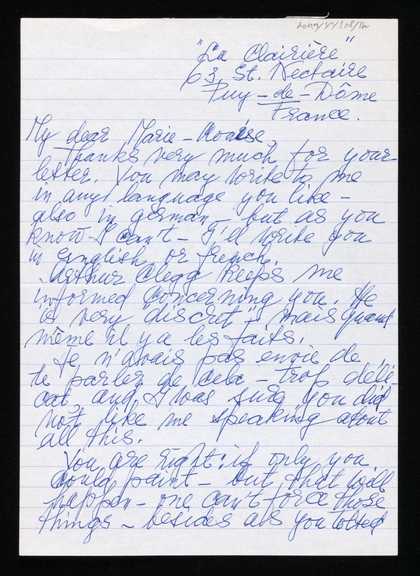 "La Clairière"
63, St. Nectaire
Puy-de-Dôme
France.
My dear Marie-Louise
Thanks very much for your
letter. You may write to me
in any language you like -
also in german - but as you
know I can't - I'd write you
in english or french.
Arthur Clegg keeps me
informed concerning you. He
is very discret - mais quand
même il y a les faits.
Je n'avais pas envie de
te parler de cela - trop déli-
cat and I was sure you did
not like me speaking about
all this.
You are right: if only you
could paint - but that will
happen - one can't force those
things - besides as you